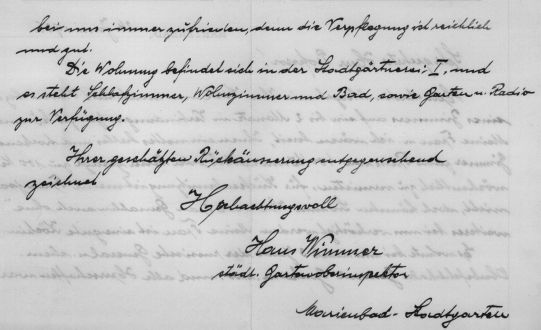 bei uns immer zufrieden, denn die Verpflegung ist reichlich
und gut.
Die Wohnung befindet sich in der Stadtgärtnerei I, und
es steht Schlafzimmer, Wohnzimmer und Bad, sowie Garten u. Radio
zur Verfügung.
Ihrer geschätzten Rückäusserung entgegensehend
zeichnet
Hochachtungsvoll
Hans Wimmer
städt. Gartenoberinspektor
Marienbad - Stadtgarten